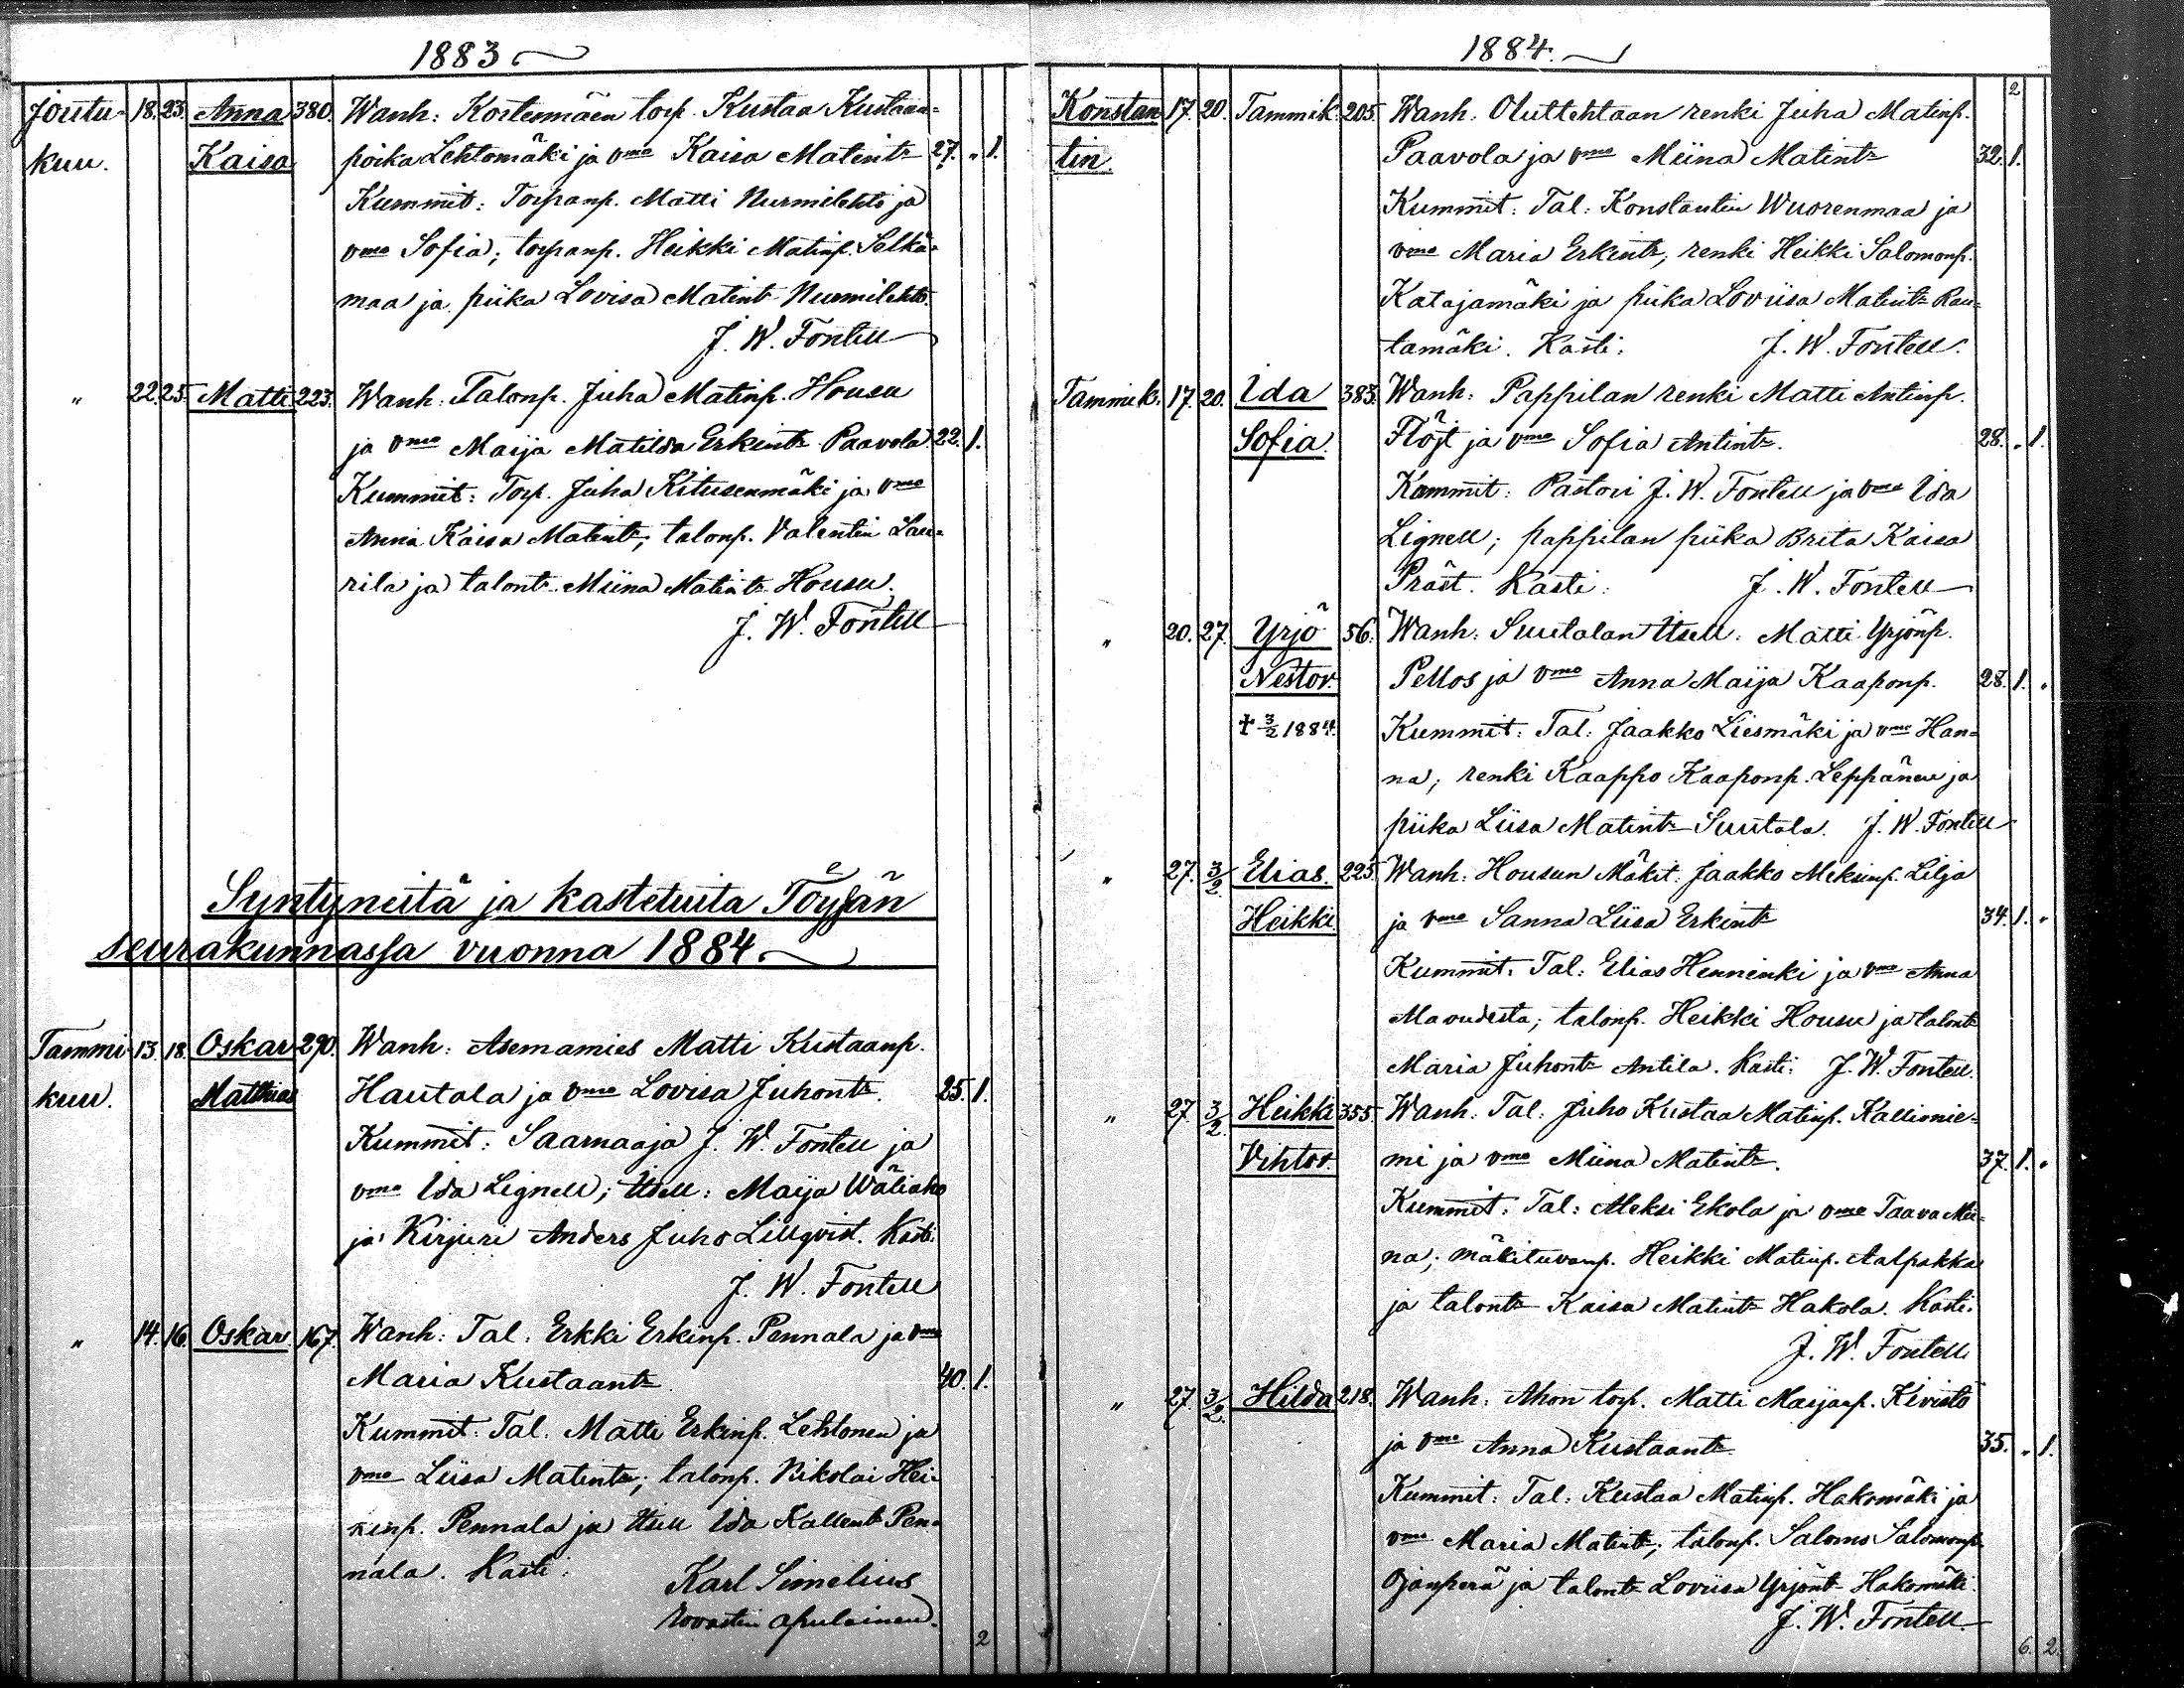 1883
Joutu- 18. 23. Anna 380. Wanh: Kortesmäen torp. Kustaa Kustaan=
kuu. Kaisa poika Lehtomäki ja vmo Kaisa Matint: 27. " 1.
Kummit: Torpanp. Matti Nurmilehto ja
vmo Sofia; torpanp. Heikki Matinp. Selkä=
maa ja piika Lovisa Matint: Nurmilehto.
J. W. Fontell
" 22. 25. Matti 223. Wanh: Talonp. Juha Matinp. Housu
ja vmo Maija Matilda Erkint: Paavola. 22. 1.
Kummit: Torp. Juha Kitusenmäki ja vmo
Anna Kaisa Matint:, talonp. Valentin Lau=
rila ja talont: Miina Matint: Housu.
J. W. Fontell
Syntyneitä ja kastetuita Töysän
seurakunnassa vuonna 1884.
Tammi- 13. 18. Oskar 290. Wanh: Asemamies Matti Kustaanp.
kuu. Matthias Hautala ja vmo Lovisa Juhont: 25. 1.
Kummit: Saarnaaja J. W. Fontell ja
vmo Ida Lignell; Itsell: Maija Wäliaho
ja Kirjuri Anders Juho Lillqvist. Kasti:
J. W. Fontell
" 14. 16. Oskar 167. Wanh: Tal: Erkki Erkinp. Pennala ja vmo
Maria Kustaant: 40. 1.
Kummit: Tal. Matti Erkinp. Lehtonen ja
vmo Liisa Matint:; talonp. Nikolai Hei=
kinp. Pennala ja Itsell Ida Kallent: Pen=
nala. Kasti: Karl Simelius
rovastin apulainen.
2
1884.
2
Konstan 17. 20. Tammik. 205. Wanh: Oluttehtaan renki Juha Matinp.
tin. Paavola ja vmo Miina Matint: 32. 1.
Kummit: Tal: Konstantin Wuorenmaa ja
vmo Maria Erkint:, renki Heikki Salomonp.
Katajamäki ja piika Loviisa Matint: Rau=
tamäki. Kasti: J. W. Fontell.
Tammik. 17. 20. Ida 383. Wanh: Pappilan renki Matti Antinp.
Sofia. Flöjt ja vmo Sofia Antint:. 28. " 1.
Kummit: Pastori J. W. Fontell ja vmo Ida
Lignell; pappilan piika Brita Kaisa
Präst. Kasti: J. W. Fontell
" 20. 27. Yrjö 56. Wanh: Suutalan Itsell: Matti Yrjönp.
Nestor. Pellos ja vmo Anna Maija Kaaponp. 28. 1. "
† 3/2 1884. Kummit: Tal: Jaakko Liesmäki ja vmo Han=
na; renki Kaappo Kaaponp. Leppänen ja
piika Liisa Matint: Suutala. J. W. Fontell
" 27. 3/2. Elias. 225. Wanh: Housun Mäkit: Jaakko Aleksinp. Lilja
Heikki ja vmo Sanna Liisa Erkint: 34. 1. "
Kummit: Tal: Elias Henninki ja vmo Anna
talonp. Heikki Housu ja talont:
Maria Juhont: Antila. Kasti: J. W. Fontell.
" 27. 3/2. Heikki 355. Wanh: Tal: Juho Kustaa Matinp. Kallionie=
Vihtor. mi ja vmo Miina Matint:. 37. 1. "
Kummit: Tal: Aleksi Ekola ja vmo Taava Mii=
na; mäkituvanp. Heikki Matinp. Aalpakka
ja talont: Kaisa Matint: Hakola. Kasti:
J. W. Fontell
" 27. 3/2. Hilda 218. Wanh: Ahon torp. Matti Maijanp. Kivistö
ja vmo Anna Kustaant: 35. " 1.
Kummit: Tal: Kustaa Matinp. Hakomäki ja
vmo Maria Matint:, talonp. Salomo Salomonp.
Ojanperä ja talont: Loviisa Yrjönt: Hakomäki
J. W. Fontell.
6. 2.